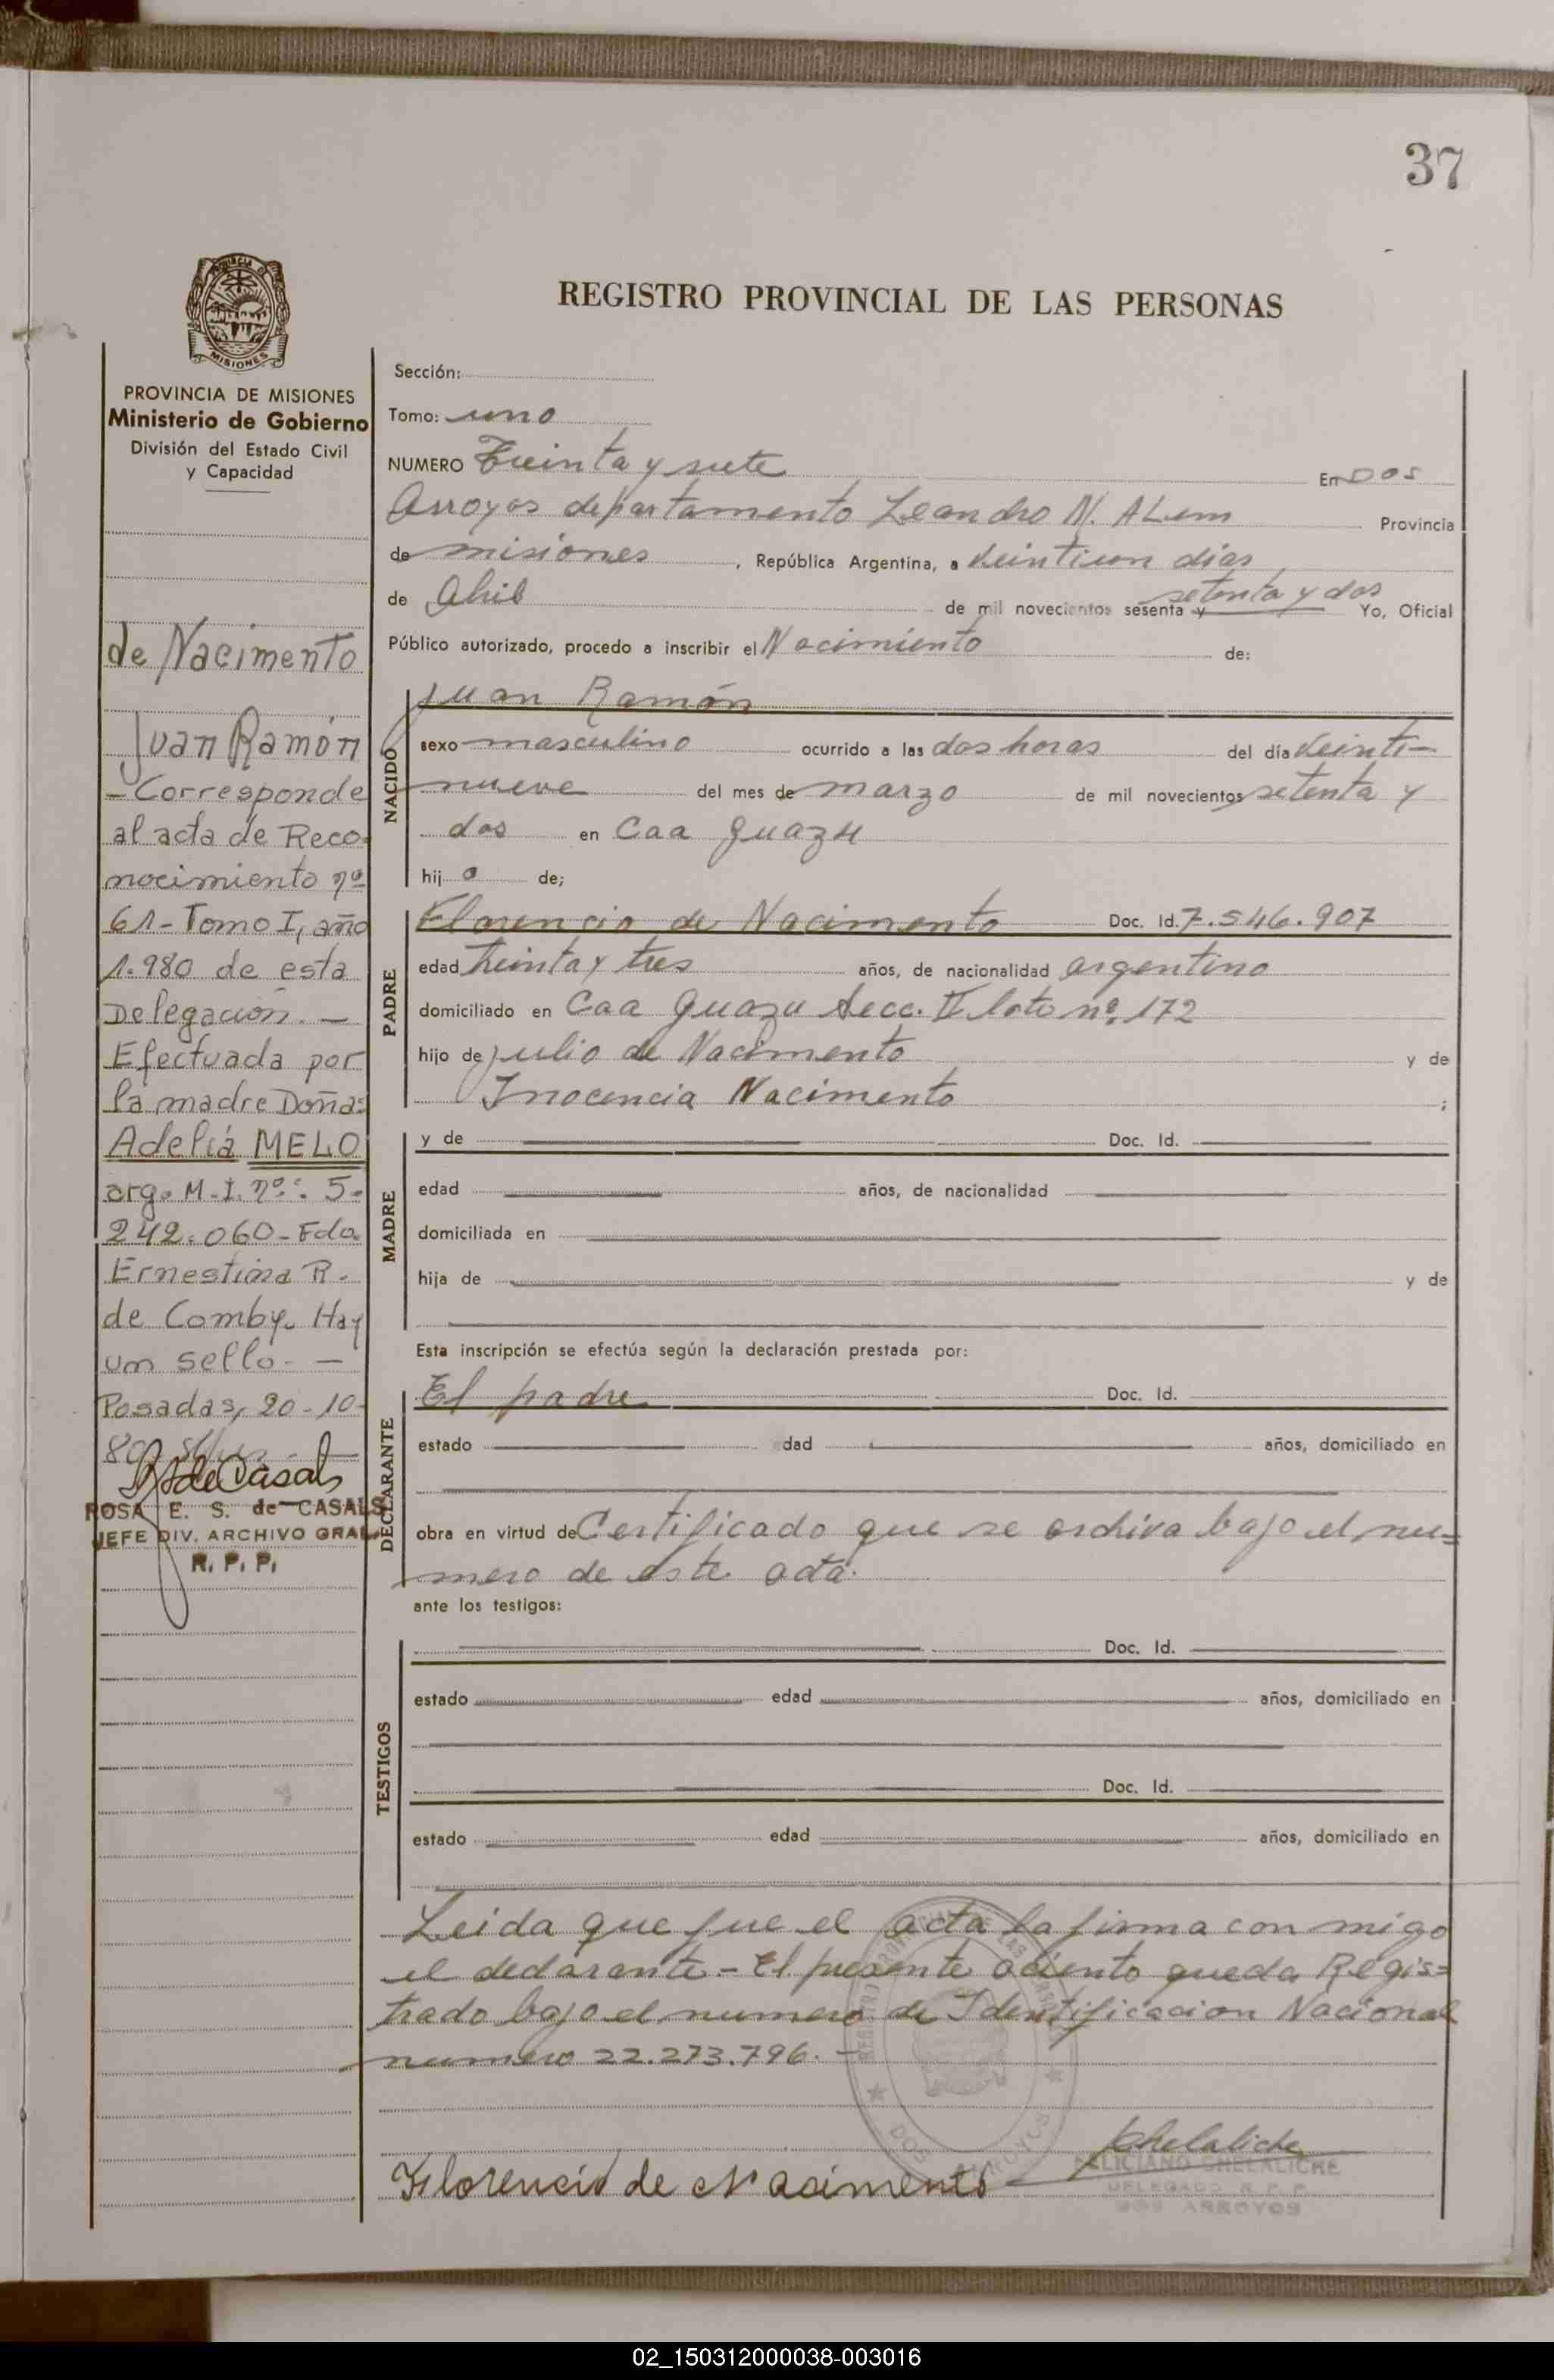 37
MISIONES
REGISTRO PROVINCIAL DE LAS PERSONAS
PROVINCIA DE MISIONES
Ministerio de Gobierno
División del Estado Civil
y Capacidad
de Nacimento
Juan Ramón
- Corresponde
al acta de Reco-
nocimiento nº
61 - Tomo I, año
1.980 de esta
Delegación. -
Efectuada por
la madre Doña:
Adelia MELO
arg. M.I. nº: 5.
242.060 - Fdo.
Ernestina R.
de Comby. Hay
un sello. -
Posadas, 20-10-
80
ROSA E. S. de CASALS
JEFE DIV. ARCHIVO GRAL.
R. P. P.
Sección:
Tomo: uno
NUMERO Treinta y siete En DOS
Arroyos departamento Leandro N. ALem Provincia
de misiones, República Argentina, a veintiun dias
de Abril de mil novecientos sesenta y setenta y dos Yo, Oficial
Público autorizado, procedo a inscribir el Nacimiento de:
Juan Ramón
NACIDO
sexo masculino ocurrido a las dos horas del día veinti-
nueve del mes de marzo de mil novecientos setenta y
dos en Caa Guazu
hijo de;
PADRE
Florencio de Nacimento Doc. Id. 7.546.907
edad treinta y tres años, de nacionalidad argentino
domiciliado en Caa Guazu Secc. II lote nº. 172
hijo de Julio de Nacimento y de
Inocencia Nacimento ;
MADRE
y de Doc. Id.
edad años, de nacionalidad
domiciliada en
hija de y de
Esta inscripción se efectúa según la declaración prestada por:
DECLARANTE
El padre Doc. Id.
estado dad años, domiciliado en
obra en virtud de Certificado que se archiva bajo el nu=
mero de este acta.
ante los testigos:
TESTIGOS
Doc. Id.
estado edad años, domiciliado en
Doc. Id.
estado edad años, domiciliado en
Leida que fue el acta la firma con migo
el declarante - El presente aciento queda Regis=
trado bajo el numero de Identificacion Nacional
numero 22.273.796. -
Florencio de Nacimento
Chelaliche
FELICIANO CHELALICHE
DELEGADO R.P.P.
DOS ARROYOS
02_150312000038-003016